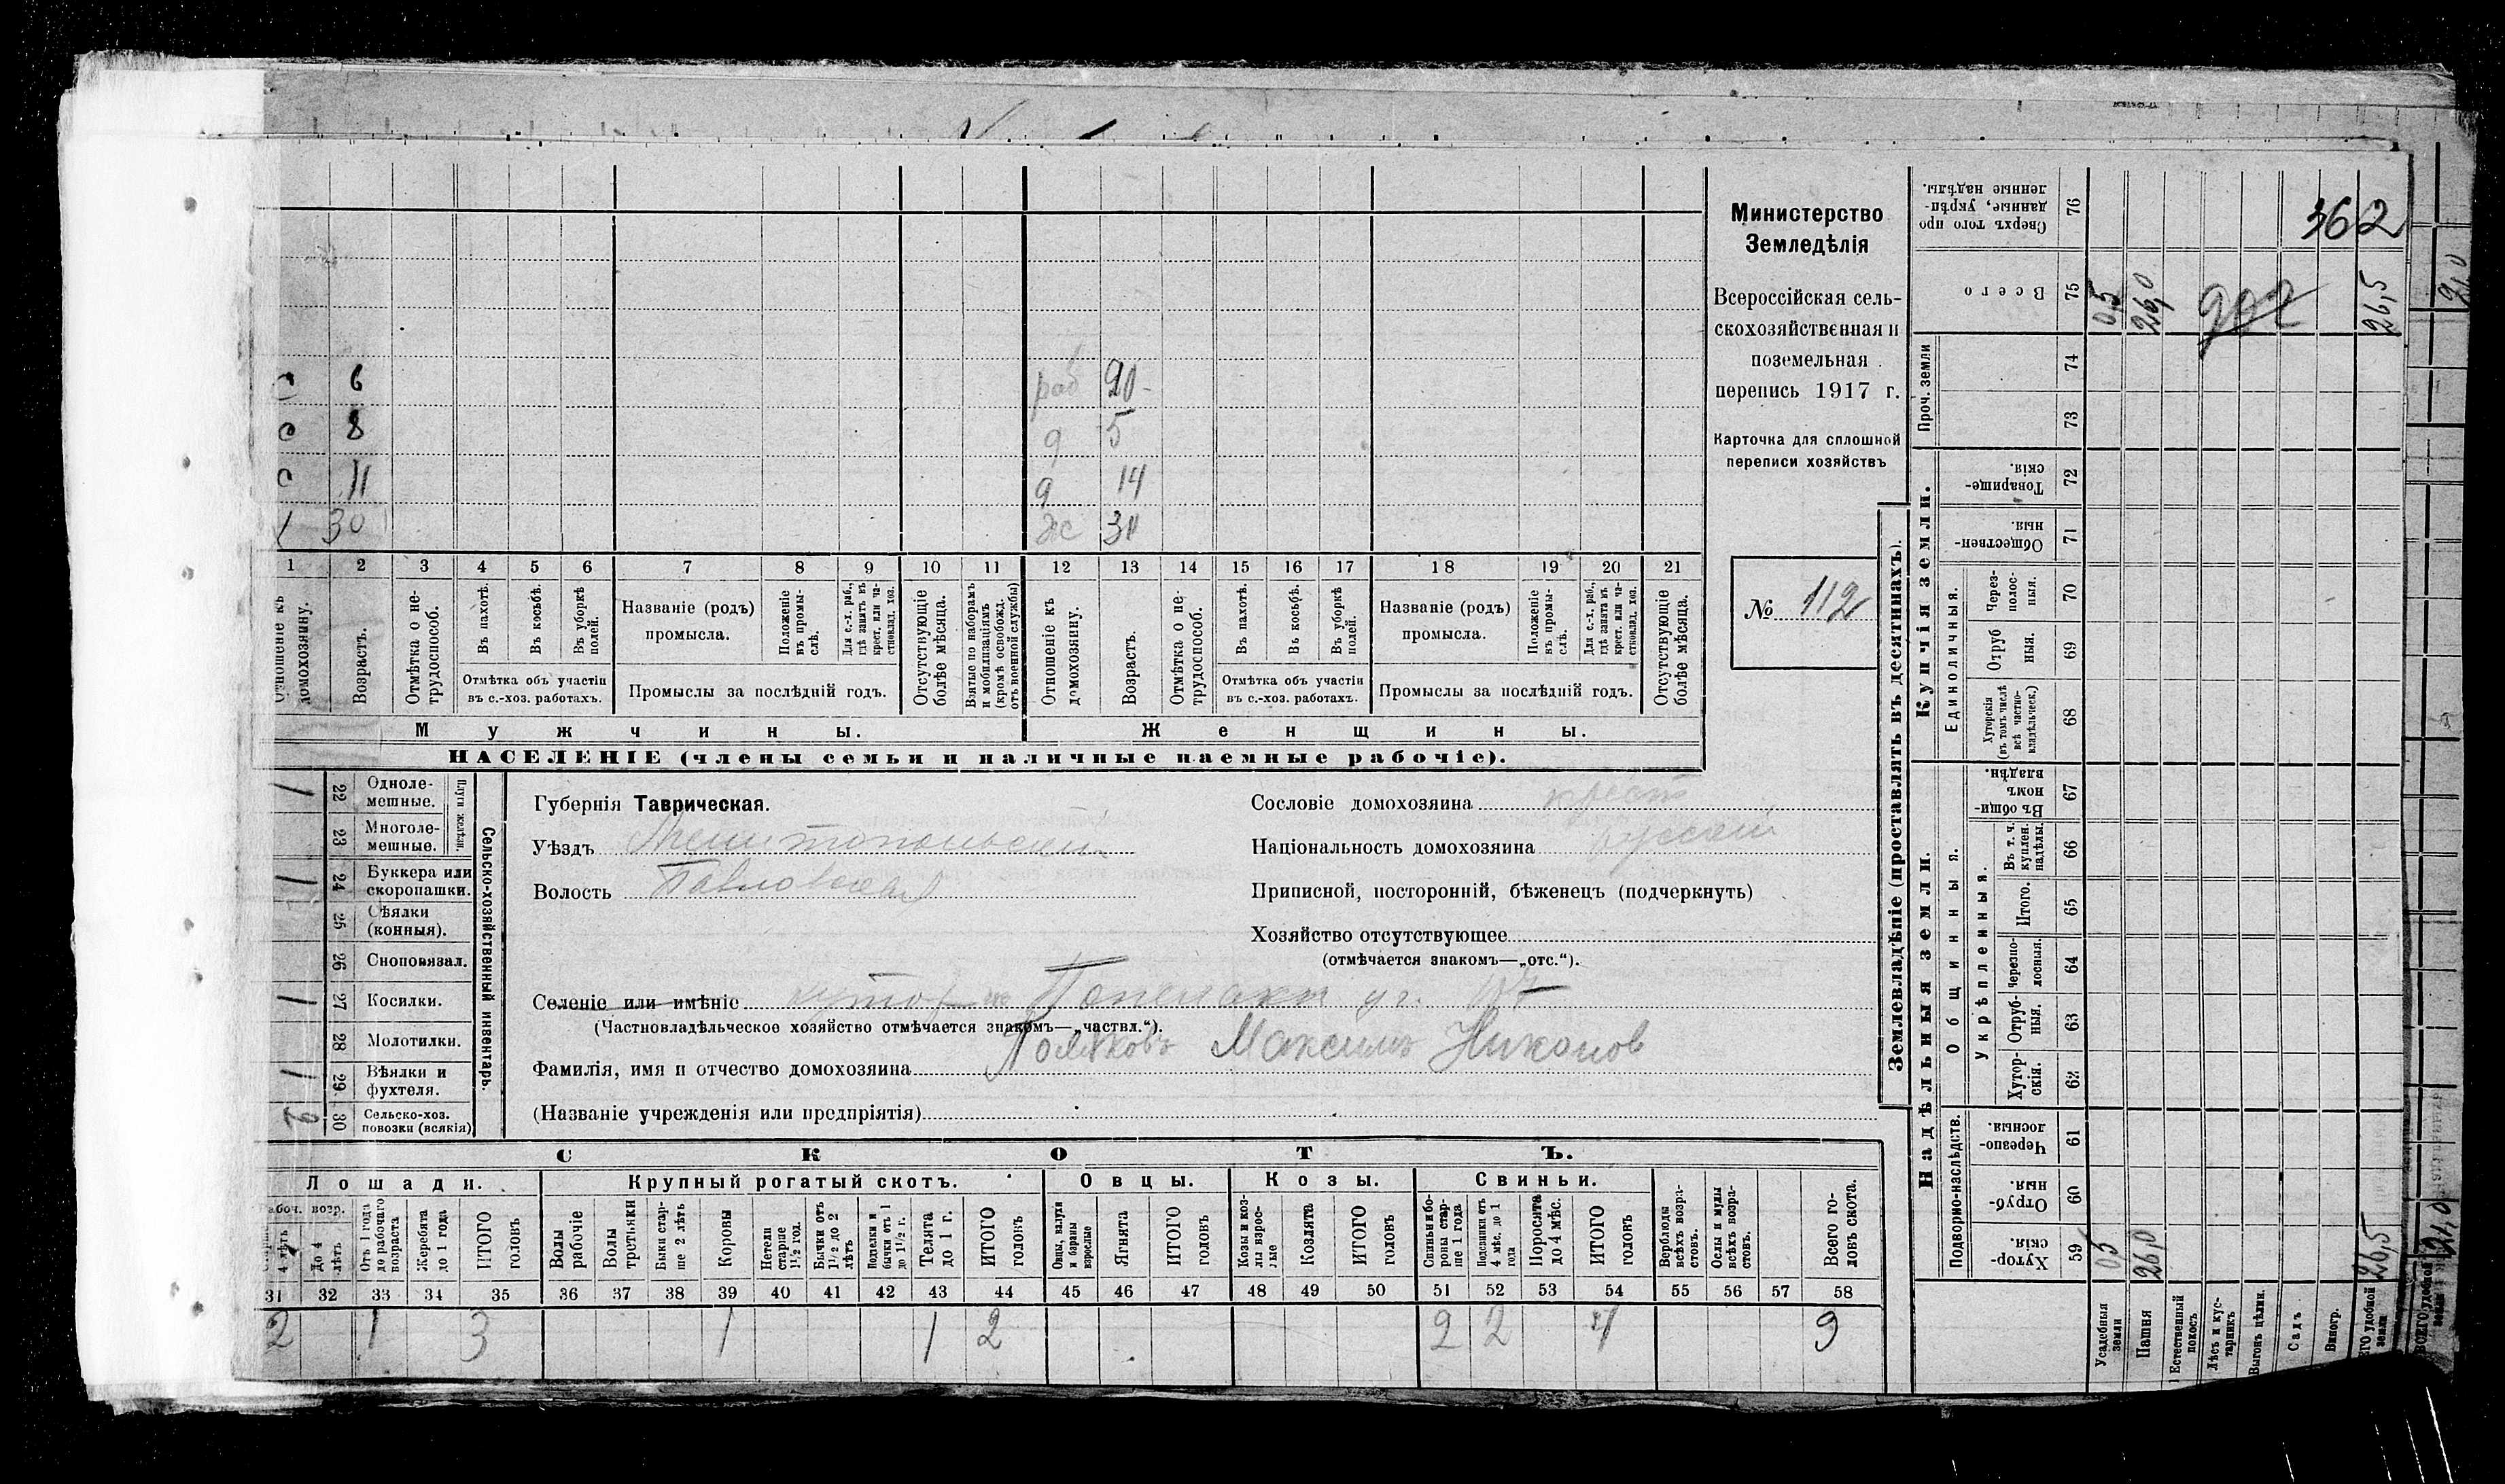 Министерство
Земледѣлія
Всероссійская сель-
скохозяйственная и
поземельная
перепись 1917 г.
Карточка для сплошной
переписи хозяйствъ
№ 112
362
6 раб 20
с 8 д 5
с 11 д 14
30 ж 30
1 2 3 4 5 6 7 8 9 10 11 12 13 14 15 16 17 18 19 20 21
Отношеніе къ домохозяину.
Возрастъ.
Отмѣтка о не-трудоспособ.
Въ пахотѣ.
Въ косьбѣ.
Въ уборкѣ полей.
Отмѣтка объ участіи въ с.-хоз. работахъ.
Названіе (родъ) промысла.
Положеніе въ промы-слѣ.
Для с.-х. раб., гдѣ занятъ въ крест. или ча-стновлад. хоз.
Промыслы за послѣдній годъ.
Отсутствующіе болѣе мѣсяца.
Взятые по наборамъ и мобилизаціямъ (кромѣ освобожд. отъ военной службы)
Отношеніе къ домохозяину.
Возрастъ.
Отмѣтка о не-трудоспособ.
Въ пахотѣ.
Въ косьбѣ.
Въ уборкѣ полей.
Отмѣтка объ участіи въ с.-хоз. работахъ.
Названіе (родъ) промысла.
Положеніе въ промы-слѣ.
Для с.-х. раб., гдѣ занята въ крест. или ча-стновлад. хоз.
Промыслы за послѣдній годъ.
Отсутствующіе болѣе мѣсяца.
Мужчины. Женщины.
НАСЕЛЕНІЕ (члены семьи и наличные наемные рабочіе).
Сельско-хозяйственный инвентарь.
Плуги желѣзн.
1 22 Одноле-мешные.
23 Многоле-мешные.
1 24 Буккера или скоропашки.
25 Сѣялки (конныя).
26 Сноповязал.
1 27 Косилки.
28 Молотилки.
1 29. Вѣялки и фухтеля.
2 30 Сельско-хоз. повозки (всякія)
Губернія Таврическая.
Уѣздъ Мелитопольскій
Волость Павловская
Селеніе или имѣніе хутор
(Частновладѣльческое хозяйство отмѣчается знакомъ—„частвл.“).
Фамилія, имя и отчество домохозяина Поляковъ Максимъ Никонов
(Названіе учрежденія или предпріятія)
Сословіе домохозяина крест
Національность домохозяина русскій
Приписной, посторонній, бѣженецъ (подчеркнуть)
Хозяйство отсутствующее
(отмѣчается знакомъ—„отс.“).
СКОТЪ.
Лошади. Крупный рогатый скотъ. Овцы. Козы. Свиньи.
Рабоч. возр.
4 лѣтъ
До 4 лѣтъ
Отъ 1 года до рабочаго возраста
Жеребята до 1 года
ИТОГО головъ
Волы рабочіе
Волы третьяки
Быки стар-ше 2 лѣтъ
Коровы
Нетели старше 1½ год.
Бычки отъ 1½ до 2 лѣтъ
Подтелки и бычки отъ 1 до 1½ г.
Телята до 1 г.
ИТОГО головъ
Овцы, валухи и бараны взрослые
Ягнята
ИТОГО головъ
Козы и коз-лы взрос-лые
Козлята
ИТОГО головъ
Свиньи бо-роны стар-ше 1 года
Подсвинки отъ 4 мѣс. до 1 года
Поросята до 4 мѣс.
ИТОГО головъ
Верблюды всѣхъ возра-стовъ.
Ослы и мулы всѣхъ возра-стовъ.
Всего го-ловъ скота.
31 32 33 34 35 36 37 38 39 40 41 42 43 44 45 46 47 48 49 50 51 52 53 54 55 56 57 58
2 1 3 1 1 2 2 2 4 9
Землевладѣніе (проставлять въ десятинахъ).
Купчія земли.
Надѣльныя земли.
Сверхъ того про данные, укрѣп-ленные надѣлы. 76
Всего 75 0,5 26,0 26,5
Проч. земли 74
73
Товарище-скія. 72
Обществен-ныя. 71
Единоличныя.
Через-полос-ныя. 70
Отруб ныя. 69
Хуторскія (въ томъ числѣ всѣ частно-владѣльческ.) 68
Общинныя.
Въ общи-номъ владѣн. 67
Укрѣпленныя.
Въ т. ч. куплен. надѣлы. 66
Итого. 65
Черезпо-лосныя. 64
Отруб-ныя. 63
Хутор-скія. 62
Подворно-наслѣдств.
Черезпо-лосныя. 61
Отруб-ныя. 60
Хутор-скія. 59 0,5 26,0 26,5
Усадебныя земли
Пашня
Естественный покосъ
Лѣсъ и кус-тарникъ
Выгонъ цѣлин.
Садъ
Виногр.
ЕГО удобной земли